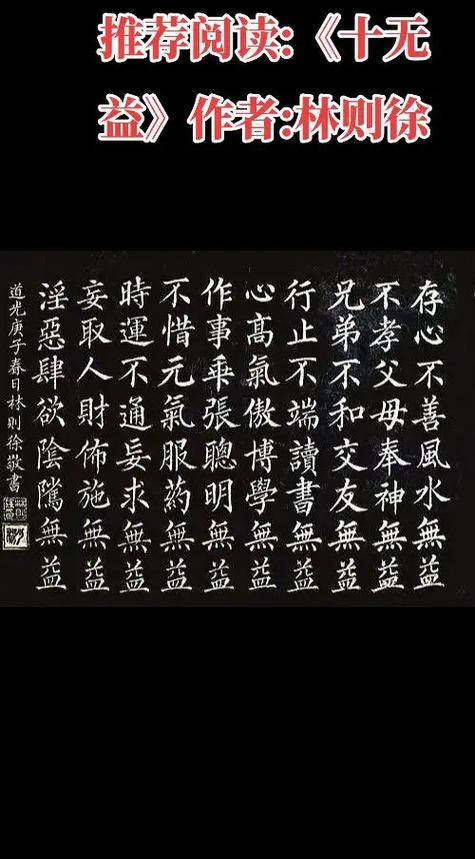 推荐阅读:《十无
益》作者:林则徐
存心不善風水無益
不孝父母奉神無益
兄弟不和交友無益
行止不端讀書無益
心高氣傲博學無益
作事乖張聰明無益
不惜元氣服藥無益
時運不通妄求無益
妄取人財佈施無益
淫惡肆欲陰騭無益
道光庚子春日林則徐敬書